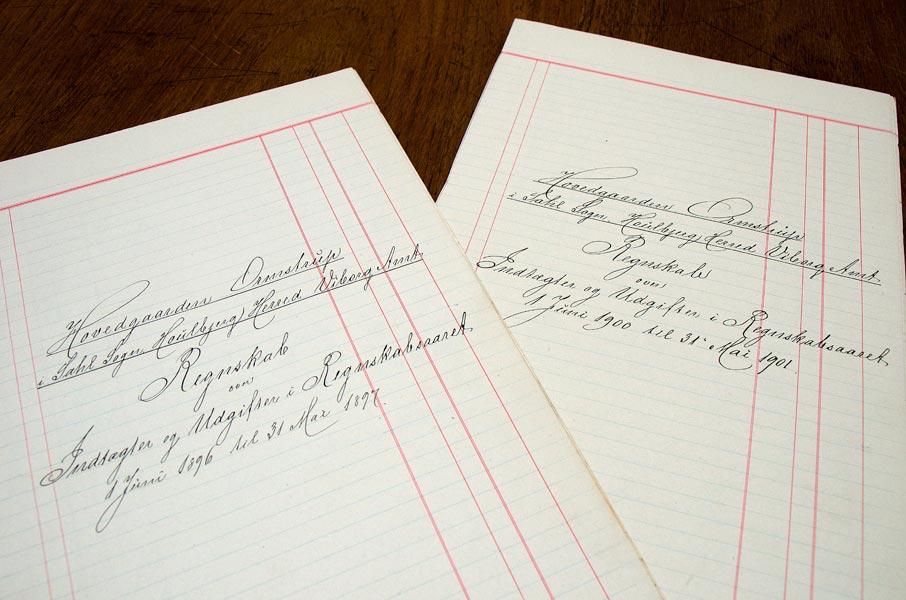 Hovedgaarden Ormstrup
i Sahl Sogn, Houlbjerg Herred Viborg Amt.
Regnskab
over
Indtægter og Udgifter i Regnskabsaaret
1 Juni 1896 til 31 Mai 1897.
Hovedgaarden Ormstrup
i Sahl Sogn, Houlbjerg Herred Viborg Amt.
Regnskab
over
Indtægter og Udgifter i Regnskabsaaret
1 Juni 1900 til 31 Mai 1901